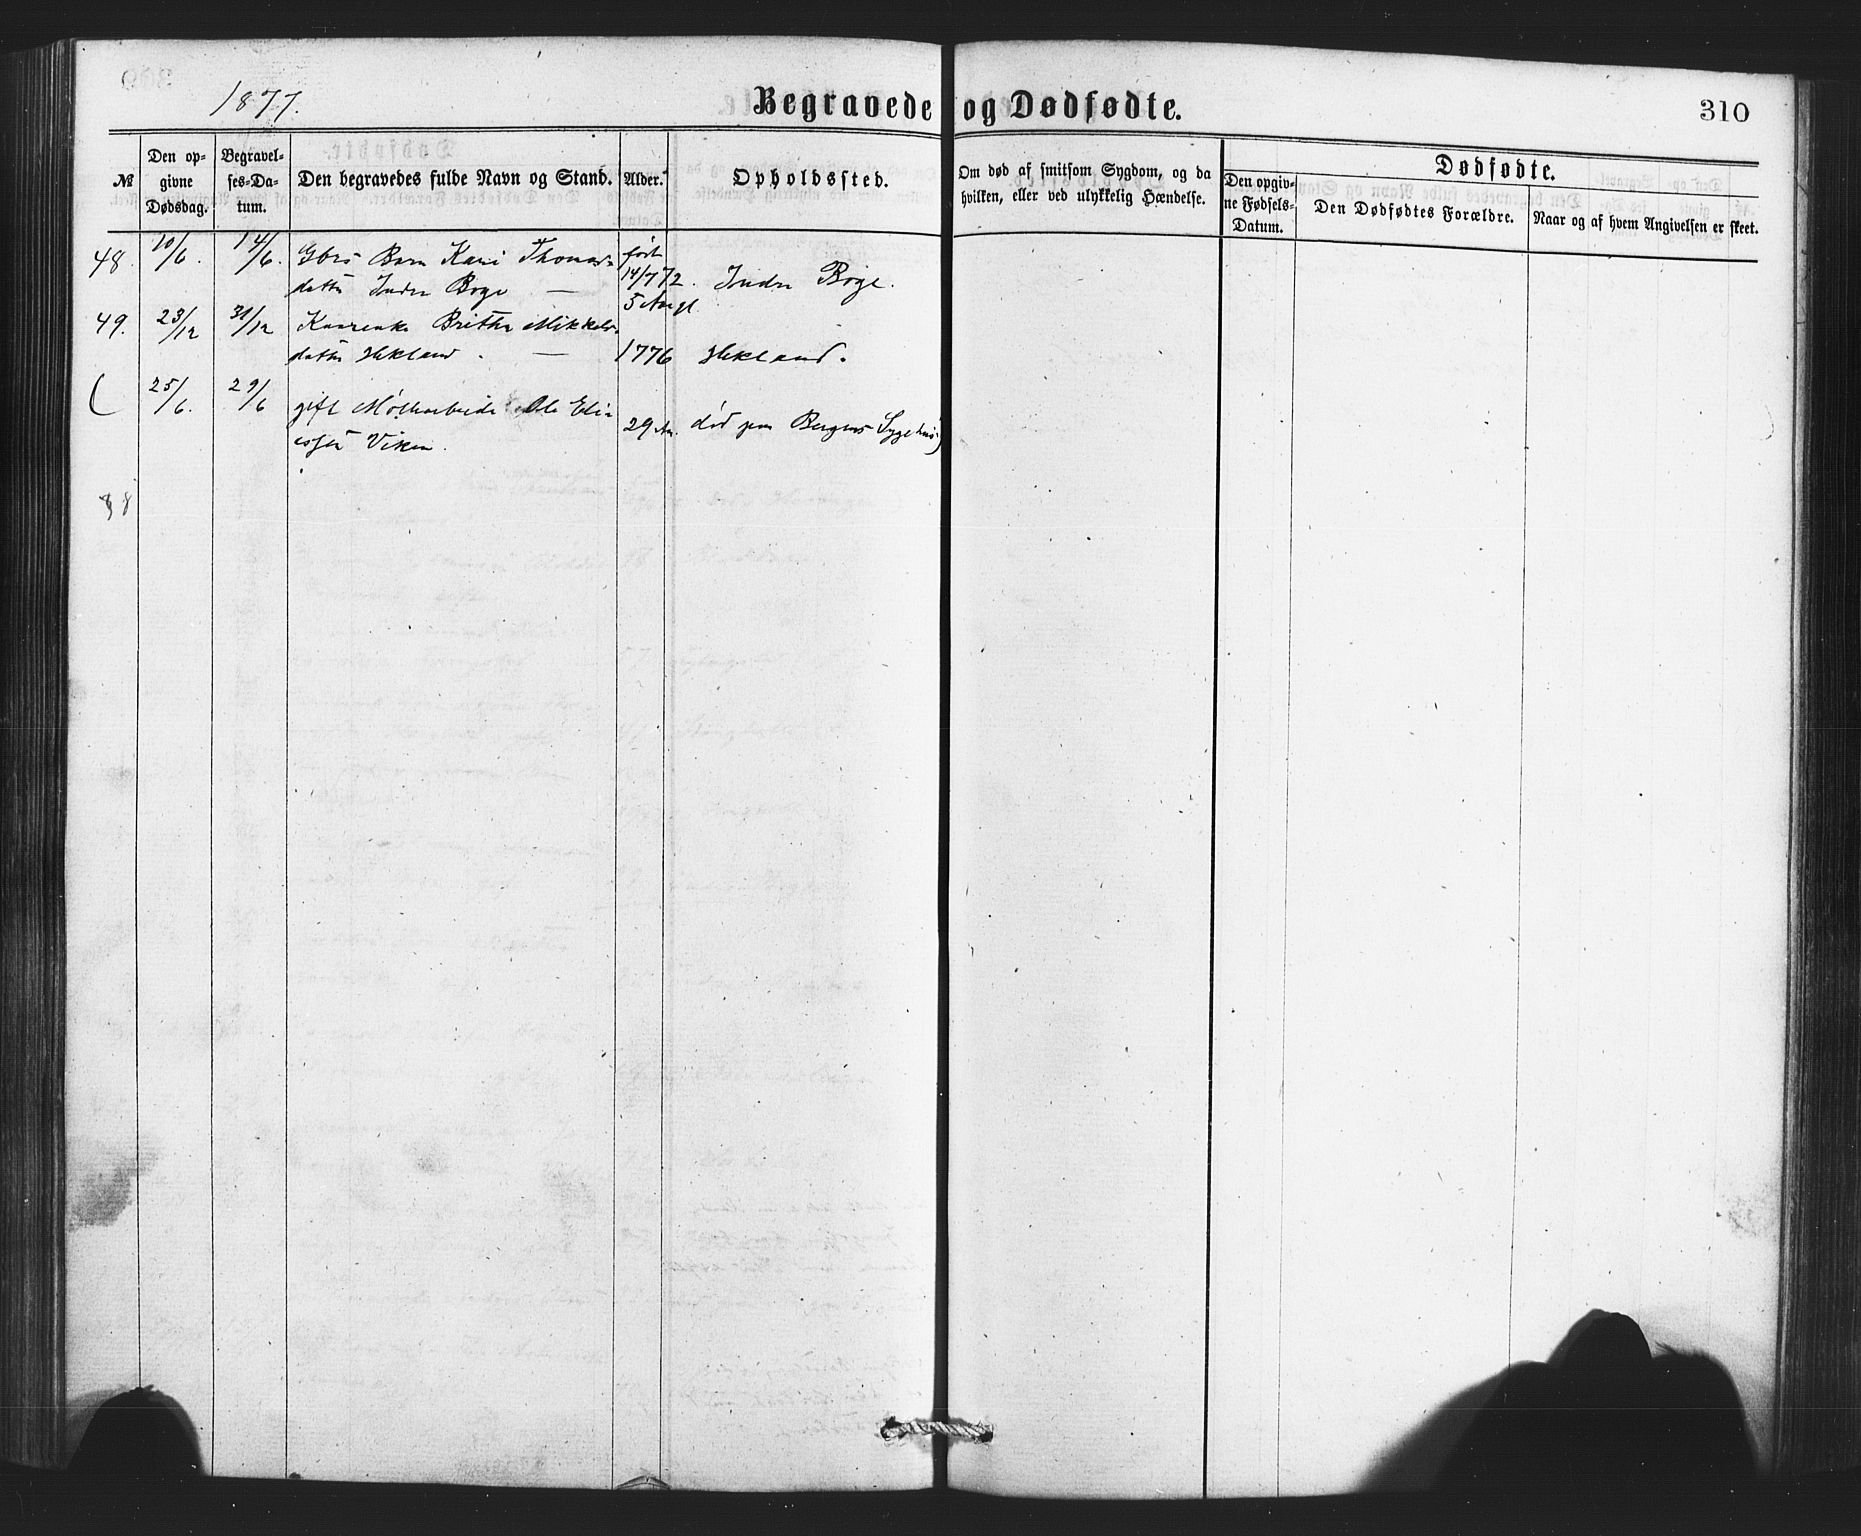 1877.
Begravede og Dødfødte.
310
№
Den op-
givne
Dødsdag.
Begravel-
ses-Da-
tum.
Den begravedes fulde Navn og Stand.
Alder.
Opholdssted.
Om død af smitsom Sygdom, og da
hvilken, eller ved ulykkelig Hændelse.
Dødfødte.
Den opgiv-
ne Fødsels-
Datum.
Den Dødfødtes Forældre.
Naar og af hvem Angivelsen er skeet.
48. 10/6. 14/6. Gbrs Barn Kari Thomas-
datter Indre Boge — født 14/7 72. Indre Boge.
5 Aar gl
49. 23/12 31/12 Brithe Mikkels-
datter Hekland. — 1776 Hekland.
( 25/6. 29/6 gift Ole Eli-
esser Viken. 29 Aar. død paa Bergens Sygehuus)
38